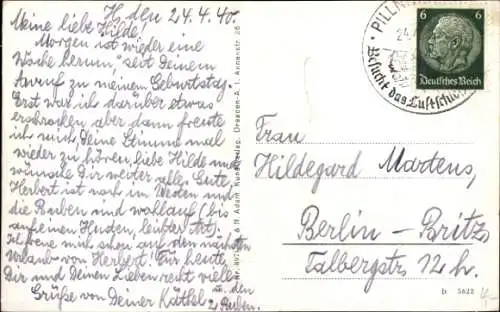 H. den 24.4.40.
Meine liebe Hilde!
Morgen ist wieder eine
Woche herum, seit Deinem
Anruf zu meinem Geburtstag.
Erst war ich darüber etwas
erschrocken aber dann freute
ich mich, Deine Stimme mal
wieder zu hören, liebe Hilde und
wünsche Dir weiter alles Gute.
Herbert ist noch im Westen und
die Buben sind wohlauf (bis
auf einen Husten, leichter Art).
Ich freue mich schon auf den nächsten
Urlaub von Herbert! Für heute
Dir und Deinen Lieben recht viele
Grüße von Deiner Käthel u. den
2 Buben.
Adam Kunstverlag, Dresden-A. 1, Annenstr. 26
PILLN
24.
Besucht das Luftschl
6 6
Deutsches Reich
Frau
Hildegard Martens,
Berlin-Britz
Talbergstr. 12 h.
b 5622